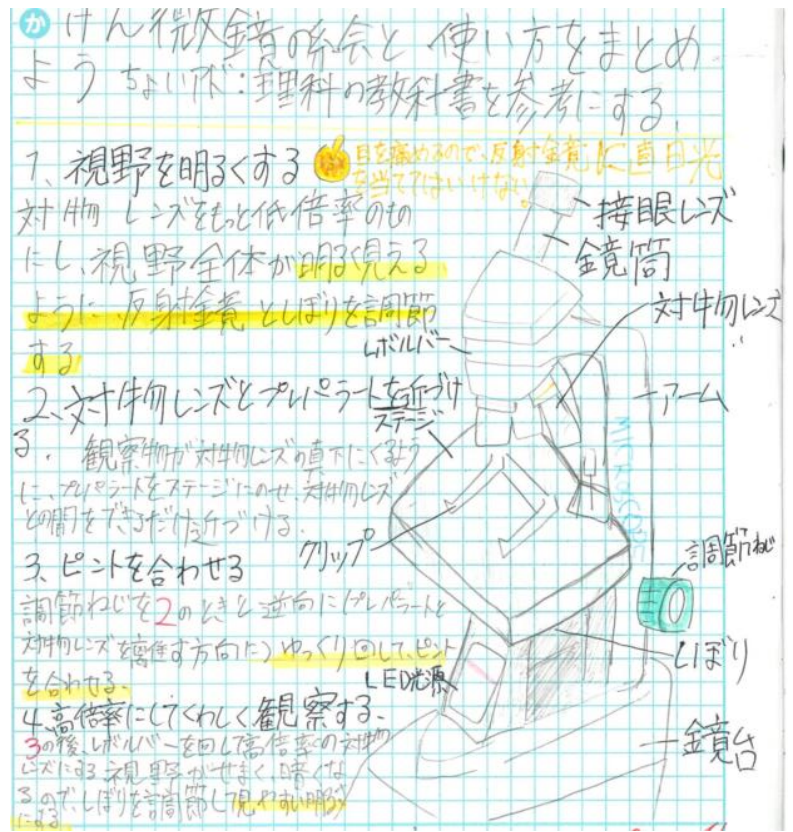 か けん微鏡の絵と使い方をまとめ
よう ちょいアド:理科の教科書を参考にする.
1、視野を明るくする
目を痛めるので、反射鏡に直日光
を当ててはいけない。
対物レンズをもっと低倍率のもの
にし、視野全体が明るく見える
ように、反射鏡としぼりを調節
する
2、対物レンズとプレパラートを近づけ
る.
観察物が対物レンズの真下にくるよう
に、プレパラートをステージにのせ、対物レンズ
との間をできるだけ近づける.
3、ピントを合わせる
調節ねじを2のときと逆向に(プレパラートと
対物レンズを離す方向に)ゆっくり回して、ピント
を合わせる.
4、高倍率にしてくわしく観察する、
3の後、レボルバーを回して高倍率の対物
レンズにする.視野がせまく、暗くな
るので、しぼりを調節して見やすい明るさ
にする
接眼レンズ
鏡筒
対物レンズ
レボルバー
アーム
ステージ
MICROSCOPE
クリップ
調節ねじ
しぼり
LED光源
鏡台